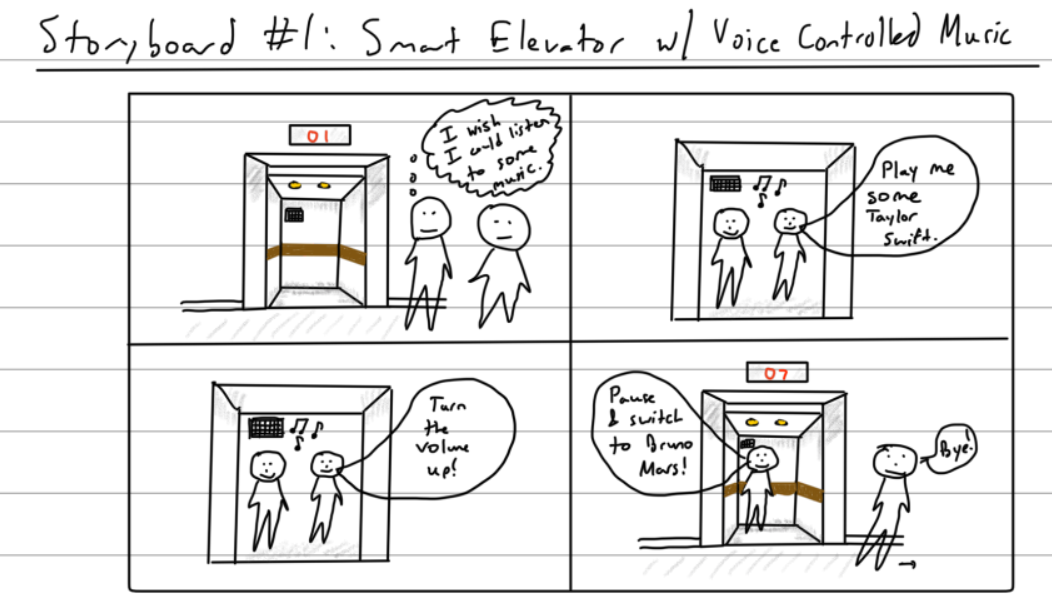 Storyboard #1: Smart Elevator w/ Voice Controlled Music
01
I wish
I could listen
to some
music.
Play me
some
Taylor
Swift.
Turn
the
volume
up!
07
Pause
& switch
to Bruno
Mars!
Bye!